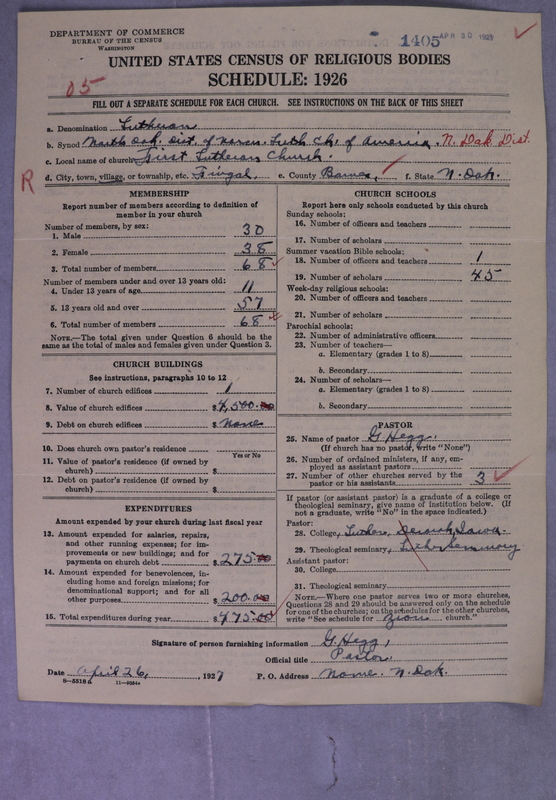 DEPARTMENT OF COMMERCE
BUREAU OF THE CENSUS
WASHINGTON
1405
APR 30 1927
UNITED STATES CENSUS OF RELIGIOUS BODIES
SCHEDULE: 1926
05
FILL OUT A SEPARATE SCHEDULE FOR EACH CHURCH. SEE INSTRUCTIONS ON THE BACK OF THIS SHEET
a. Denomination Lutheran
b. Synod North Dak. Dist. of Norw. Luth. Ch. of America. N. Dak Dist.
c. Local name of church First Lutheran Church.
R
d. City, town, village, or township, etc. Fingal, e. County Barnes, f. State N. Dak.
MEMBERSHIP
Report number of members according to definition of member in your church
Number of members, by sex:
1. Male 30
2. Female 38
3. Total number of members 68
Number of members under and over 13 years old:
4. Under 13 years of age 11
5. 13 years old and over 57
6. Total number of members 68
NOTE.—The total given under Question 6 should be the same as the total of males and females given under Question 3.
CHURCH BUILDINGS
See instructions, paragraphs 10 to 12
7. Number of church edifices 1
8. Value of church edifices $4,500.00
9. Debt on church edifices $None
10. Does church own pastor's residence?
Yes or No
11. Value of pastor's residence (if owned by church) $
12. Debt on pastor's residence (if owned by church) $
EXPENDITURES
Amount expended by your church during last fiscal year
13. Amount expended for salaries, repairs, and other running expenses; for improvements or new buildings; and for payments on church debt $275.00
14. Amount expended for benevolences, including home and foreign missions; for denominational support; and for all other purposes $200.00
15. Total expenditures during year $475.00
CHURCH SCHOOLS
Report here only schools conducted by this church
Sunday schools:
16. Number of officers and teachers
17. Number of scholars
Summer vacation Bible schools:
18. Number of officers and teachers 1
19. Number of scholars 45
Week-day religious schools:
20. Number of officers and teachers
21. Number of scholars
Parochial schools:
22. Number of administrative officers
23. Number of teachers—
a. Elementary (grades 1 to 8)
b. Secondary
24. Number of scholars—
a. Elementary (grades 1 to 8)
b. Secondary
PASTOR
25. Name of pastor G. Hegg.
(If church has no pastor, write "None")
26. Number of ordained ministers, if any, employed as assistant pastors
27. Number of other churches served by the pastor or his assistants 3
If pastor (or assistant pastor) is a graduate of a college or theological seminary, give name of institution below. (If not a graduate, write "No" in the space indicated.)
Pastor:
28. College, Luther, Decorah, Iowa.
29. Theological seminary, Luther Seminary
Assistant pastor:
30. College
31. Theological seminary
NOTE.—Where one pastor serves two or more churches, Questions 28 and 29 should be answered only on the schedule for one of the churches; on the schedules for the other churches, write "See schedule for Zion church."
Signature of person furnishing information G. Hegg,
Official title Pastor
Date April 26, 1927 P. O. Address Nome. N. Dak.